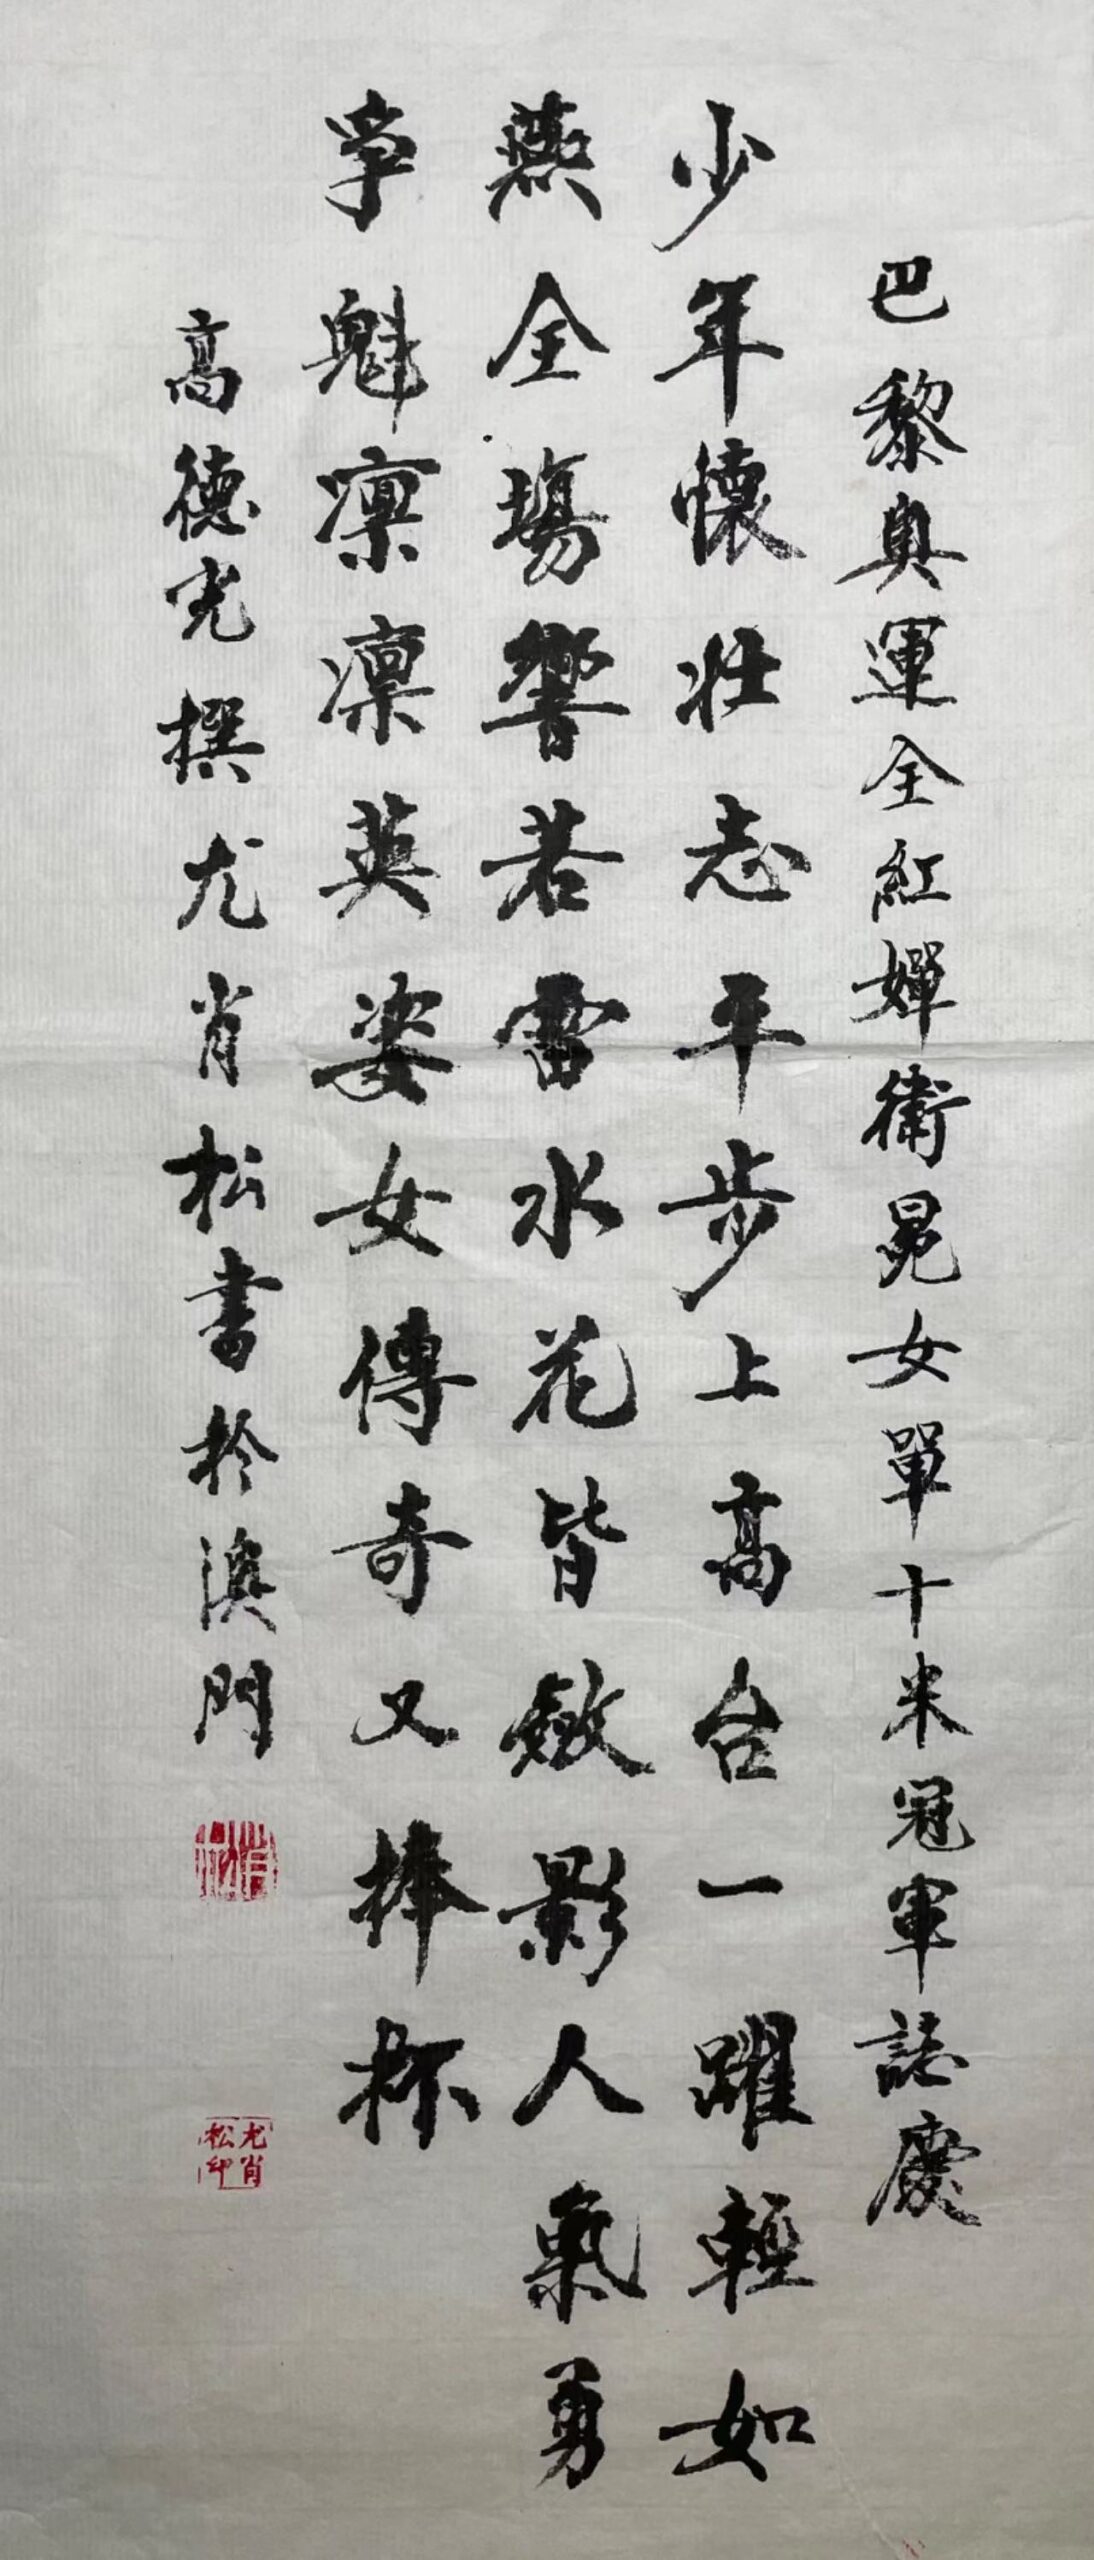 巴黎奥運全紅嬋衛冕女單十米冠軍誌慶
少年懷壯志平步上高台一躍輕如
燕全場響若雷水花皆斂影人氣勇
爭魁凛凛英姿女傳奇又捧杯
高德光撰尤肖松書於澳門
尤肖松印